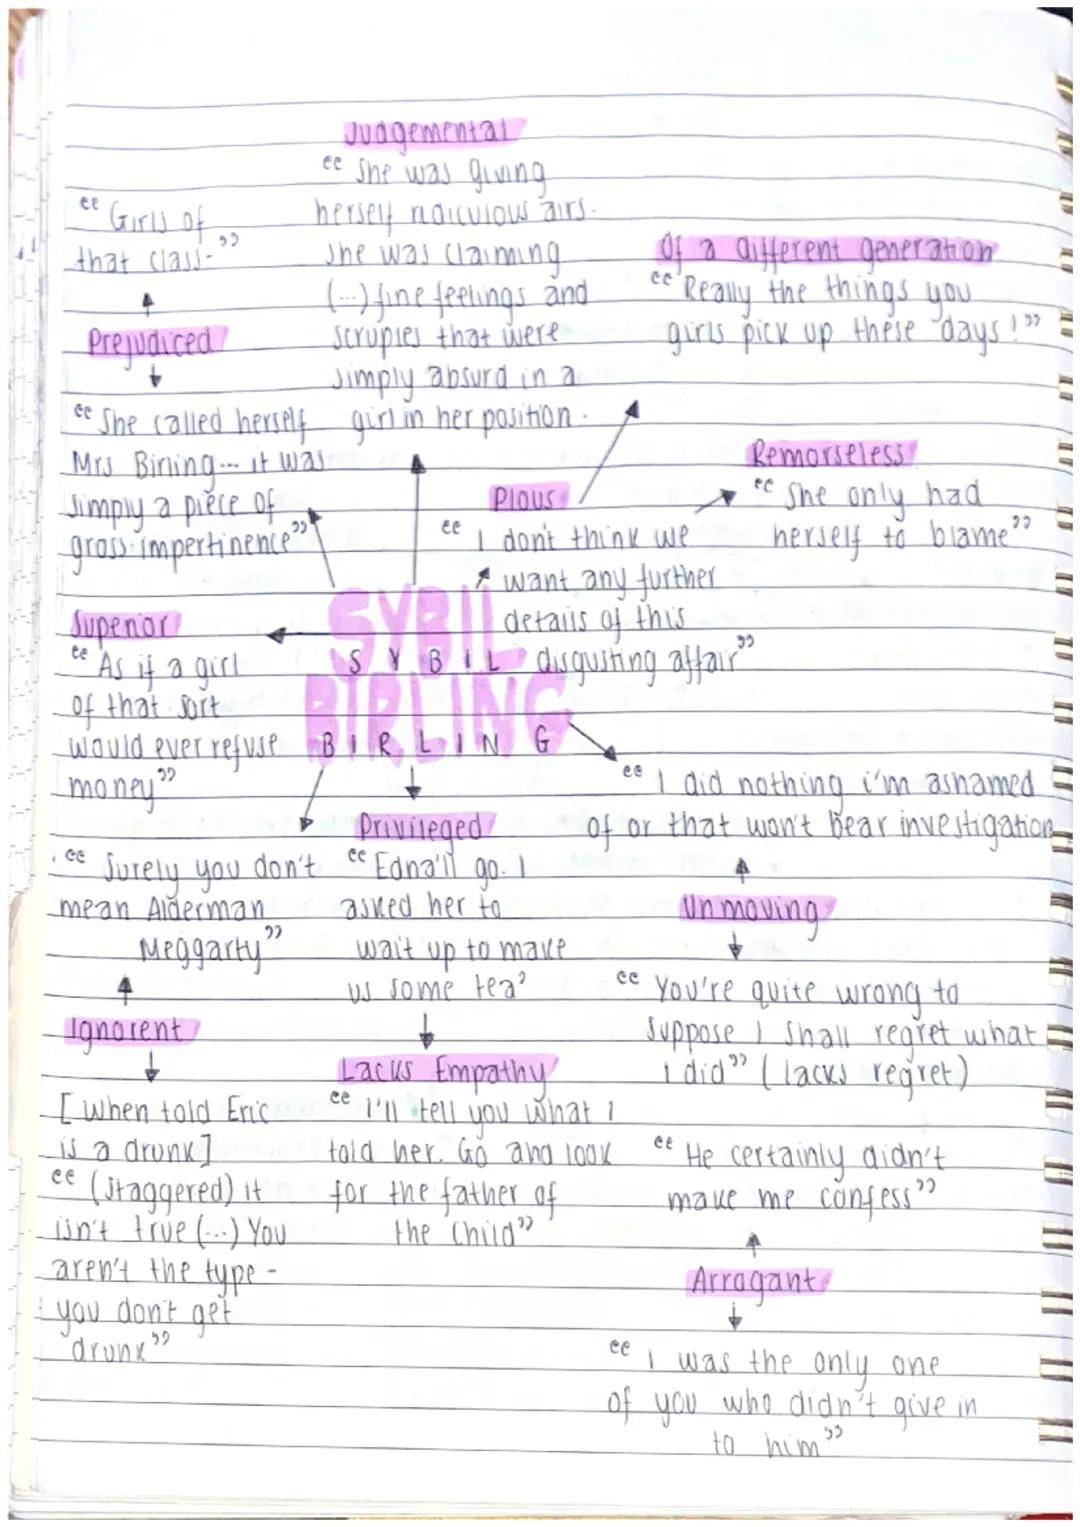 Judgemental
“ She was giving
herself ridiculous airs.
She was claiming
(...) fine feelings and
scruples that were
simply absurd in a
girl in her position.
“ Girls of
that class-”
Prejudiced
“ She called herself
Mrs Birling... it was
simply a piece of
gross impertinence”
Of a different generation
“ Really the things you
girls pick up these days!”
Remorseless
“ She only had
herself to blame”
Pious
“ I don't think we
want any further
details of this
disgusting affair”
Superior
“ As if a girl
of that sort
would ever refuse
money”
SYBIL
S Y B I L
BIRLING
B I R L I N G
“ I did nothing i'm ashamed
of or that won't bear investigation
Unmoving
“ You're quite wrong to
suppose I shall regret what
I did” (lacks regret)
“ Surely you don't
mean Alderman
Meggarty”
Ignorent
[When told Eric
is a drunk]
“ (Staggered) it
isn't true (...) You
aren't the type -
you don't get
drunk”
Privileged
“ Edna'll go. I
asked her to
wait up to make
us some tea’
Lacks Empathy
“ I'll tell you what I
told her. Go and look
for the father of
the Child”
“ He certainly didn't
make me confess”
Arrogant
“ I was the only one
of you who didn't give in
to him”